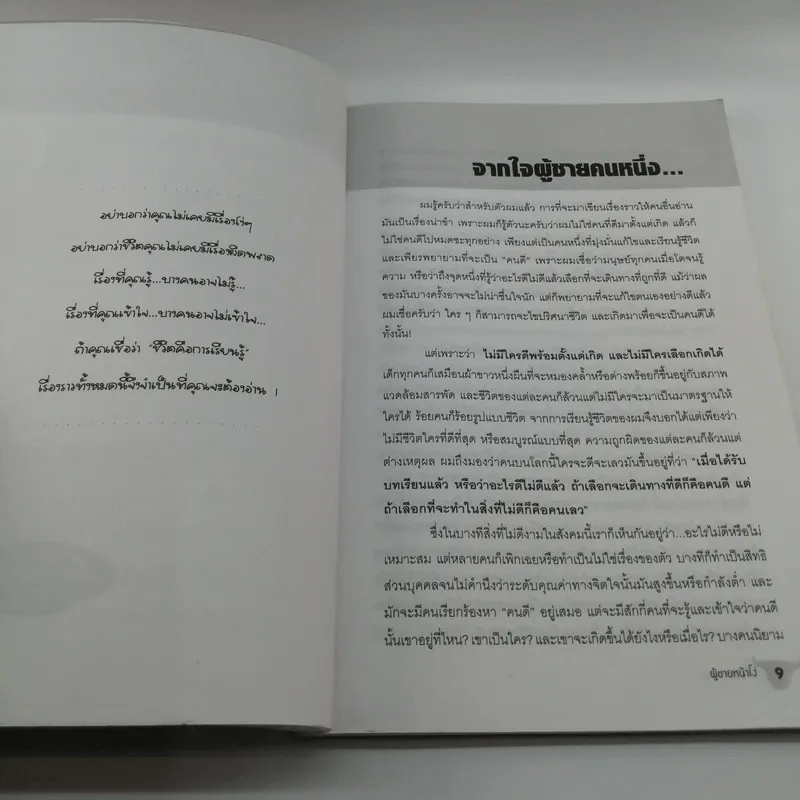 อย่าบอกว่าคุณไม่เคยมีเรื่องโง่ๆ
อย่าบอกว่าชีวิตคุณไม่เคยมีเรื่องผิดพลาด
เรื่องที่คุณรู้...บางคนอาจไม่รู้...
เรื่องที่คุณเข้าใจ...บางคนอาจไม่เข้าใจ...
ถ้าคุณเชื่อว่า "ชีวิตคือการเรียนรู้"
เรื่องราวทั้งหมดนี้จึงจำเป็นที่คุณจะต้องอ่าน !
จากใจผู้ชายคนหนึ่ง...
ผมรู้ครับว่าสำหรับตัวผมแล้ว การที่จะมาเขียนเรื่องราวให้คนอื่นอ่าน
มันเป็นเรื่องน่าขำ เพราะผมก็รู้ตัวนะครับว่าผมไม่ใช่คนที่ดีมาตั้งแต่เกิด แล้วก็
ไม่ใช่คนดีไปหมดซะทุกอย่าง เพียงแต่เป็นคนหนึ่งที่มุ่งมั่นแก้ไขและเรียนรู้ชีวิต
และเพียรพยายามที่จะเป็น "คนดี" เพราะผมเชื่อว่ามนุษย์ทุกคนเมื่อโตจนรู้
ความ หรือว่าถึงจุดหนึ่งที่รู้ว่าอะไรดีไม่ดีแล้วเลือกที่จะเดินทางที่ถูกที่ดี แม้ว่าผล
ของมันบางครั้งอาจจะไม่น่าชื่นใจนัก แต่ก็พยายามที่จะแก้ไขตนเองอย่างดีแล้ว
ผมเชื่อครับว่า ใคร ๆ ก็สามารถจะไขปริศนาชีวิต และเกิดมาเพื่อจะเป็นคนดีได้
ทั้งนั้น!
แต่เพราะว่า ไม่มีใครดีพร้อมตั้งแต่เกิด และไม่มีใครเลือกเกิดได้
เด็กทุกคนก็เสมือนผ้าขาวหนึ่งผืนที่จะหมองคล้ำหรือด่างพร้อยก็ขึ้นอยู่กับสภาพ
แวดล้อมสารพัด และชีวิตของแต่ละคนก็ล้วนแต่ไม่มีใครจะมาเป็นมาตรฐานให้
ใครได้ ร้อยคนก็ร้อยรูปแบบชีวิต จากการเรียนรู้ชีวิตของผมจึงบอกได้แต่เพียงว่า
ไม่มีชีวิตใครที่ดีที่สุด หรือสมบูรณ์แบบที่สุด ความถูกผิดของแต่ละคนก็ล้วนแต่
ต่างเหตุผล ผมถึงมองว่าคนบนโลกนี้ใครจะดีจะเลวมันขึ้นอยู่ที่ว่า "เมื่อได้รับ
บทเรียนแล้ว หรือว่าอะไรดีไม่ดีแล้ว ถ้าเลือกจะเดินทางที่ดีก็คือคนดี แต่
ถ้าเลือกที่จะทำในสิ่งที่ไม่ดีก็คือคนเลว"
ซึ่งในบางทีสิ่งที่ไม่ดีงามในสังคมนี้เราก็เห็นกันอยู่ว่า...อะไรไม่ดีหรือไม่
เหมาะสม แต่หลายคนก็เพิกเฉยหรือทำเป็นไม่ใช่เรื่องของตัว บางทีก็ทำเป็นสิทธิ
ส่วนบุคคลจนไม่คำนึงว่าระดับคุณค่าทางจิตใจนั้นมันสูงขึ้นหรือกำลังต่ำ และ
มักจะมีคนเรียกร้องหา "คนดี" อยู่เสมอ แต่จะมีสักกี่คนที่จะรู้และเข้าใจว่าคนดี
นั้นเขาอยู่ที่ไหน? เขาเป็นใคร? และเขาจะเกิดขึ้นได้ยังไงหรือเมื่อไร? บางคนนิยาม
ผู้ชายหน้าโง่ 9